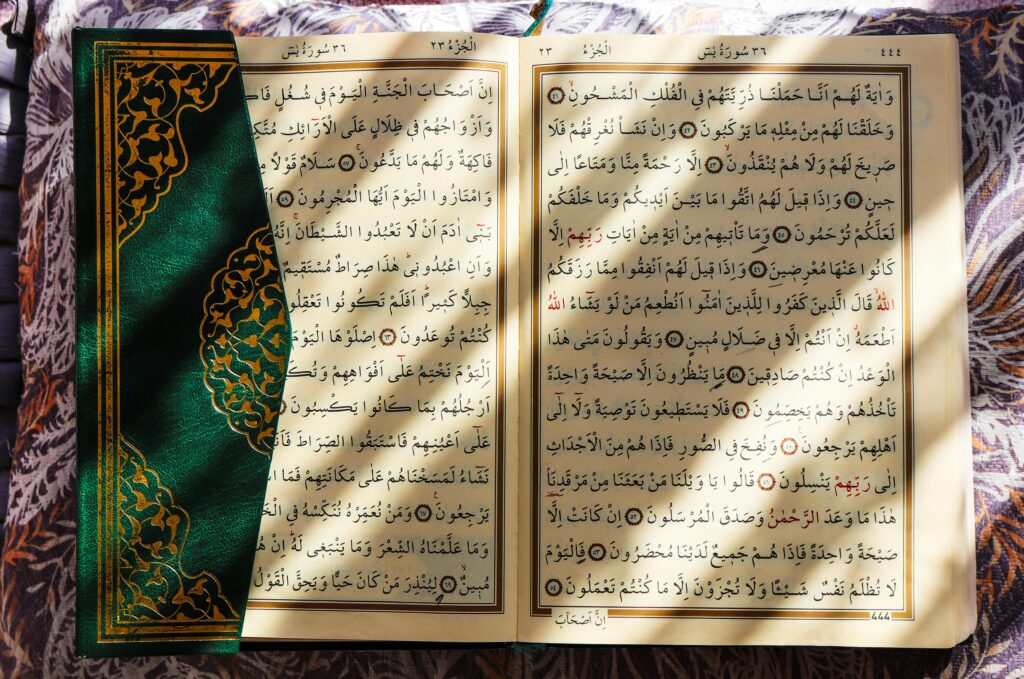 ٤٤٤ ٣٦ سُورَةُ يٰسٓ الْجُزْءُ ٢٣
وَاٰيَةٌ لَهُمْ اَنَّا حَمَلْنَا ذُرِّيَّتَهُمْ فِي الْفُلْكِ الْمَشْحُونِۙ ٤١
وَخَلَقْنَا لَهُمْ مِنْ مِثْلِه۪ مَا يَرْكَبُونَ ٤٢ وَاِنْ نَشَأْ نُغْرِقْهُمْ فَلَا
صَر۪يخَ لَهُمْ وَلَا هُمْ يُنْقَذُونَۙ ٤٣ اِلَّا رَحْمَةً مِنَّا وَمَتَاعًا اِلٰى
ح۪ينٍ ٤٤ وَاِذَا ق۪يلَ لَهُمُ اتَّقُوا مَا بَيْنَ اَيْد۪يكُمْ وَمَا خَلْفَكُمْ
لَعَلَّكُمْ تُرْحَمُونَ ٤٥ وَمَا تَأْت۪يهِمْ مِنْ اٰيَةٍ مِنْ اٰيَاتِ رَبِّهِمْ اِلَّا
كَانُوا عَنْهَا مُعْرِض۪ينَ ٤٦ وَاِذَا ق۪يلَ لَهُمْ اَنْفِقُوا مِمَّا رَزَقَكُمُ
اللّٰهُۙ قَالَ الَّذ۪ينَ كَفَرُوا لِلَّذ۪ينَ اٰمَنُٓوا اَنُطْعِمُ مَنْ لَوْ يَشَٓاءُ اللّٰهُ
اَطْعَمَهُۗ اِنْ اَنْتُمْ اِلَّا ف۪ي ضَلَالٍ مُب۪ينٍ ٤٧ وَيَقُولُونَ مَتٰى هٰذَا
الْوَعْدُ اِنْ كُنْتُمْ صَادِق۪ينَ ٤٨ مَا يَنْظُرُونَ اِلَّا صَيْحَةً وَاحِدَةً
تَأْخُذُهُمْ وَهُمْ يَخِصِّمُونَ ٤٩ فَلَا يَسْتَط۪يعُونَ تَوْصِيَةً وَلَٓا اِلٰٓى
اَهْلِهِمْ يَرْجِعُونَ۟ ٥٠ وَنُفِخَ فِي الصُّورِ فَاِذَا هُمْ مِنَ الْاَجْدَاثِ
اِلٰى رَبِّهِمْ يَنْسِلُونَ ٥١ قَالُوا يَا وَيْلَنَا مَنْ بَعَثَنَا مِنْ مَرْقَدِنَاۢ
هٰذَا مَا وَعَدَ الرَّحْمٰنُ وَصَدَقَ الْمُرْسَلُونَ ٥٢ اِنْ كَانَتْ اِلَّا
صَيْحَةً وَاحِدَةً فَاِذَا هُمْ جَم۪يعٌ لَدَيْنَا مُحْضَرُونَ ٥٣ فَالْيَوْمَ
لَا تُظْلَمُ نَفْسٌ شَيْـًٔا وَلَا تُجْزَوْنَ اِلَّا مَا كُنْتُمْ تَعْمَلُونَ ٥٤
444
اِنَّ اَصْحَابَ
الْجُزْءُ ٢٣ ٣٦ سُورَةُ يٰسٓ
اِنَّ اَصْحَابَ الْجَنَّةِ الْيَوْمَ ف۪ي شُغُلٍ
وَاَزْوَاجُهُمْ ف۪ي ظِلَالٍ عَلَى الْاَرَٓائِكِ
فَاكِهَةٌ وَلَهُمْ مَا يَدَّعُونَۚ ٥٧ سَلَامٌ قَوْلًا
وَامْتَازُوا الْيَوْمَ اَيُّهَا الْمُجْرِمُونَ ٥٩
بَن۪ٓي اٰدَمَ اَنْ لَا تَعْبُدُوا الشَّيْطَانَۚ اِنَّهُ
وَاَنِ اعْبُدُون۪يۜ هٰذَا صِرَاطٌ مُسْتَق۪يمٌ
جِبِلًّا كَث۪يرًاۜ اَفَلَمْ تَكُونُوا تَعْقِلُو
كُنْتُمْ تُوعَدُونَ ٦٣ اِصْلَوْهَا الْيَوْمَ
اَلْيَوْمَ نَخْتِمُ عَلٰٓى اَفْوَاهِهِمْ
اَرْجُلُهُمْ بِمَا كَانُوا يَكْسِبُونَ
عَلٰٓى اَعْيُنِهِمْ فَاسْتَبَقُوا الصِّرَاطَ
نَشَٓاءُ لَمَسَخْنَاهُمْ عَلٰى مَكَانَتِهِمْ فَمَا
يَرْجِعُونَ۟ ٦٧ وَمَنْ نُعَمِّرْهُ نُنَكِّسْهُ فِي
وَمَا عَلَّمْنَاهُ الشِّعْرَ وَمَا يَنْبَغ۪ي لَهُۜ اِنْ
مُب۪ينٌۙ ٦٩ لِيُنْذِرَ مَنْ كَانَ حَيًّا وَيَحِقَّ الْقَوْلُ